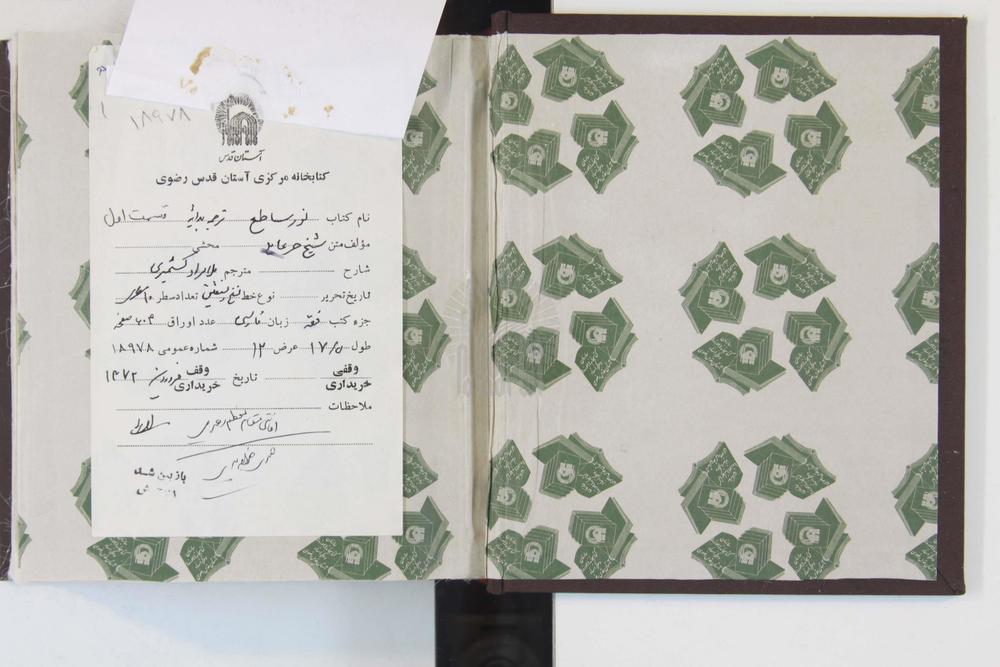 ۱۸۹۷۸
آستان قدس
کتابخانه مرکزی آستان قدس رضوی
نام کتاب نور ساطع ترجمه بدایه قسمت اول
مؤلف متن شیخ حر عاملی محشی
شارح مترجم ملا مراد کشمیری
تاریخ تحریر نوع خط نسخ و نستعلیق تعداد سطر
جزء کتب فقه زبان فارسی عدد اوراق ۶۰۴ صفحه
طول ۱۷/۵ عرض ۱۲ شماره عمومی ۱۸۹۷۸
وقفی خریداری تاریخ وقف خریداری فروردین ۱۳۷۲
ملاحظات
اهدائی مقام معظم رهبری
بازبین شد